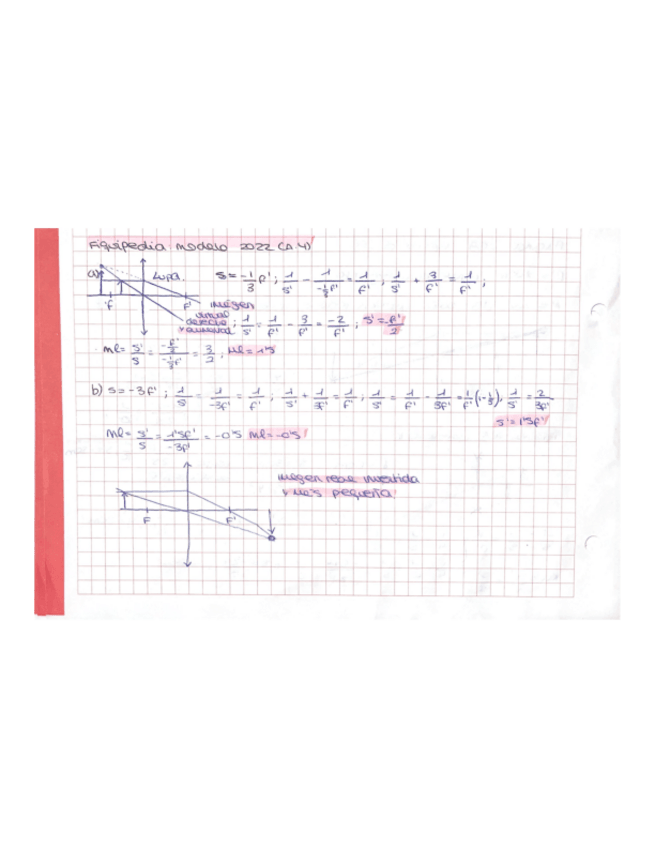 Fiquipedia: modelo 2022 (A.4)
a) Lupa. s = -1/3 f' ; 1/s' - 1/(-1/3 f') = 1/f' ; 1/s' + 3/f' = 1/f' ;
F F' imagen
virtual
derecha
y aumentada ; 1/s' = 1/f' - 3/f' = -2/f' ; s' = -f'/2
Ml = s'/s = (-f'/2)/(-1/3 f') = 3/2 ; Ml = 1'5
b) s = -3f' ; 1/s = 1/(-3f') = 1/f' ; 1/s' + 1/3f' = 1/f' ; 1/s' = 1/f' - 1/3f' = 1/f' (1-1/3), 1/s' = 2/3f'
s' = 1'5f'
Ml = s'/s = 1'5f'/(-3f') = -0'5 Ml = -0'5
imagen real invertida
y más pequeña
F F'